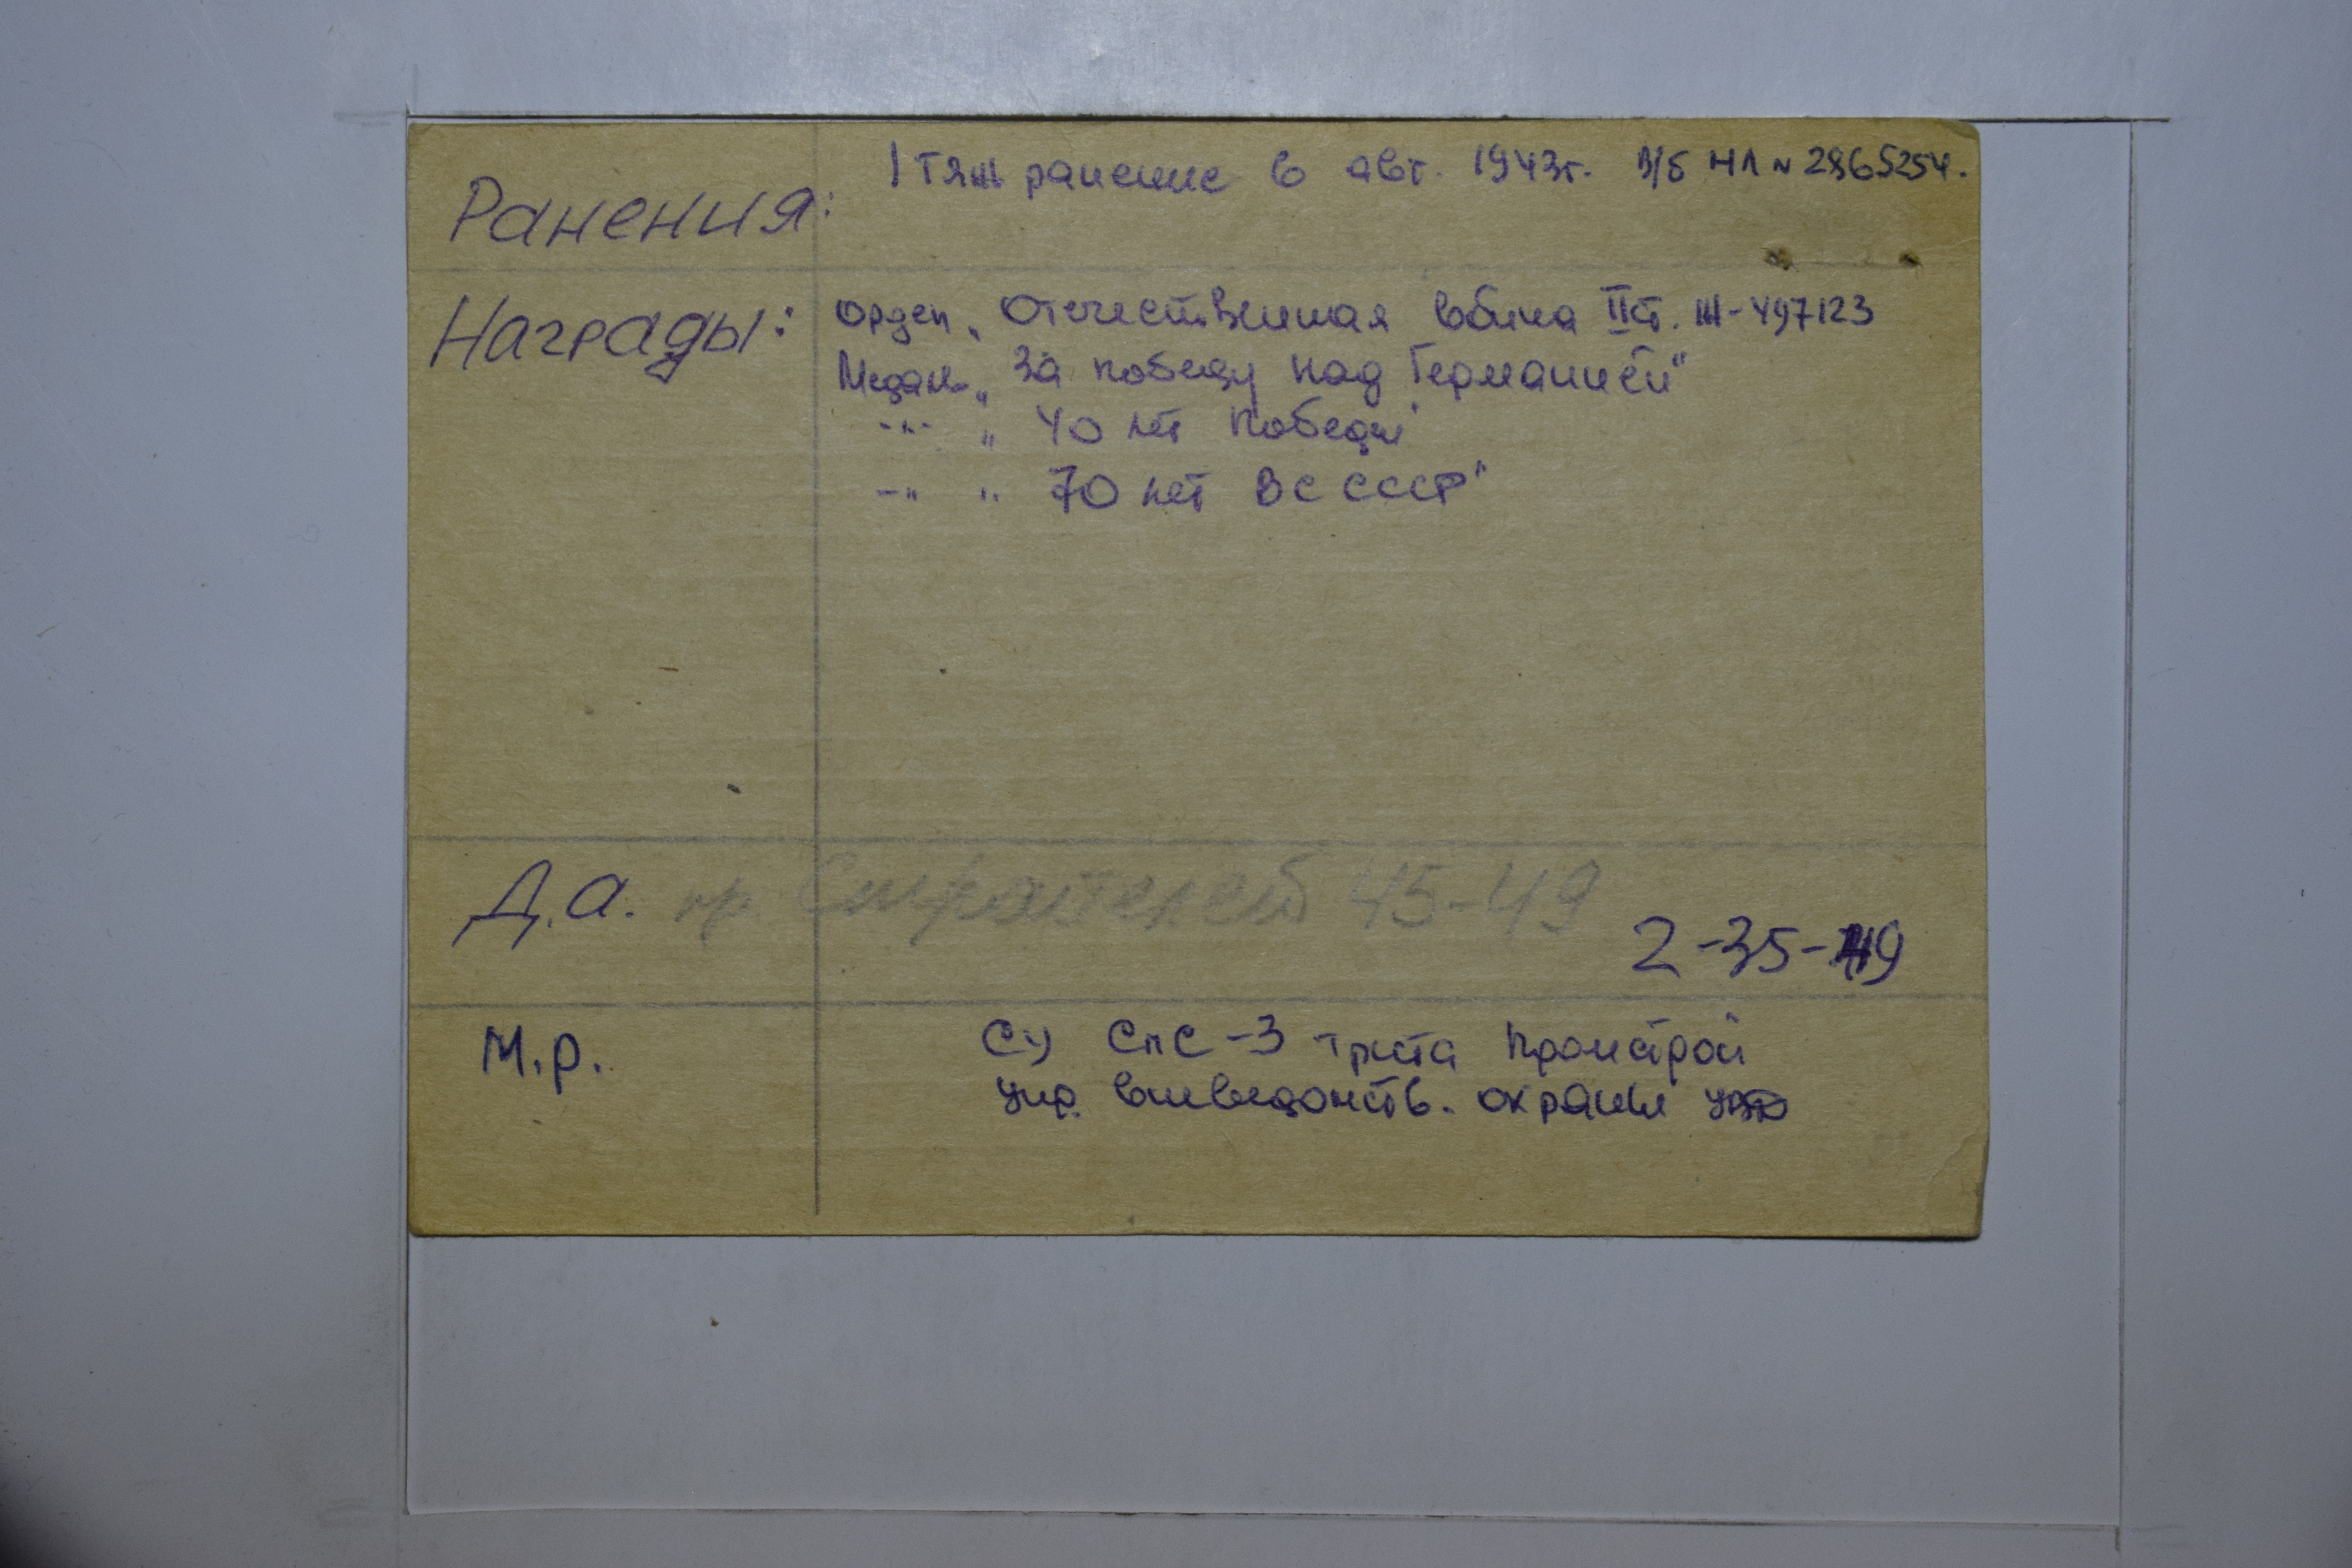 Ранения: 1 тяж ранение в авг. 1943г. в/б НЛ № 2865254.
Награды: Орден „Отечественная война II ст. Ж-497123
Медаль „За победу над Германией"
-"- „40 лет Победы"
-"- „70 лет ВС СССР"
Д.а. пр. Строителей 45-49
2-35-49
М.р. СУ СПС-3 треста Промстрой
Упр. вневедомств. охраны